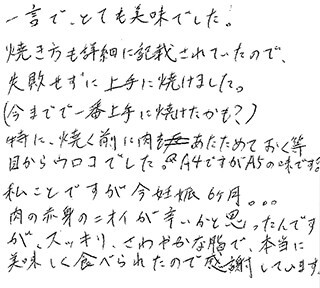 一言で、とても美味でした。
焼き方も詳細に記載されていたので、
失敗せずに上手に焼けました。
(今までで一番上手に焼けたかも?)
特に、焼く前に肉をあたためておく等
目からウロコでした。A4ですがA5の味です!!
私ことですが今妊娠6ヶ月。。。
肉の赤身のニオイが辛いかと思ったんです
が、スッキリ、さわやかな脂で、本当に
美味しく食べられたので感謝しています。